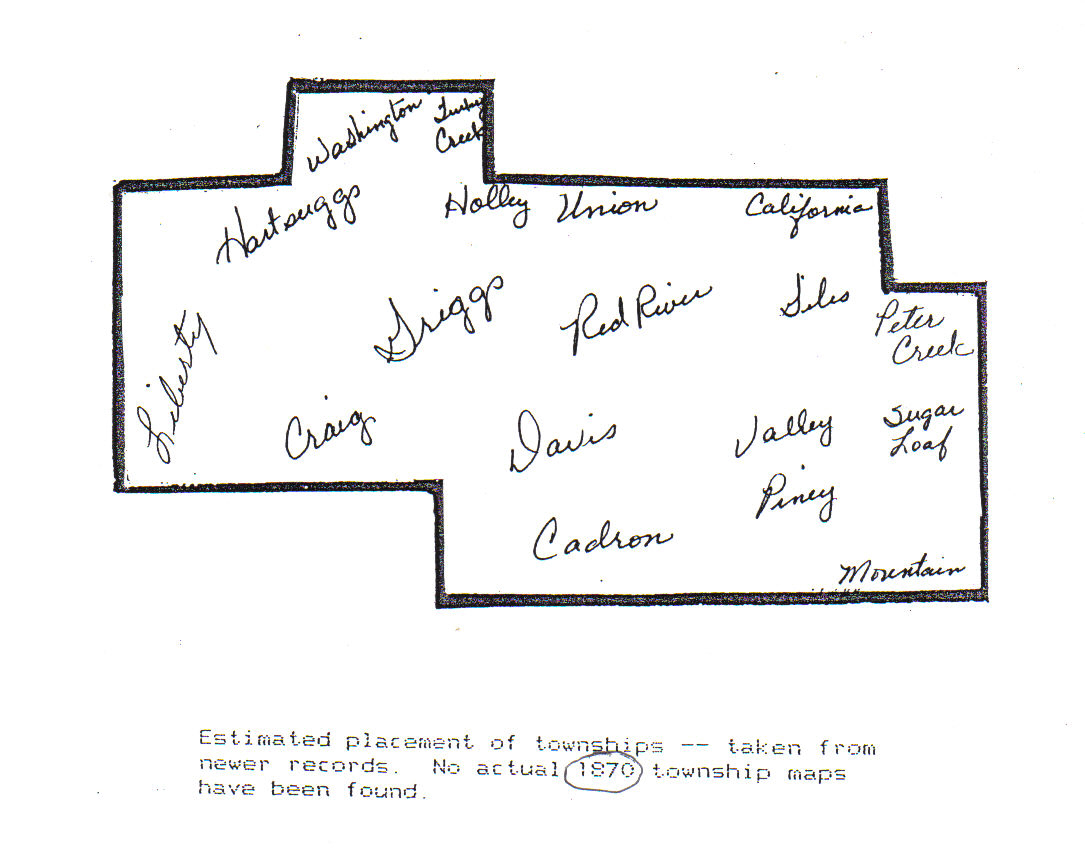 Washington
Turkey
Creek
Hartsuggs
Holley
Union
California
Griggs
Red River
Siles
Peter
Creek
Liberty
Craig
Davis
Valley
Sugar
Loaf
Piney
Cadron
Mountain
Estimated placement of townships -- taken from
newer records. No actual 1870 township maps
have been found.